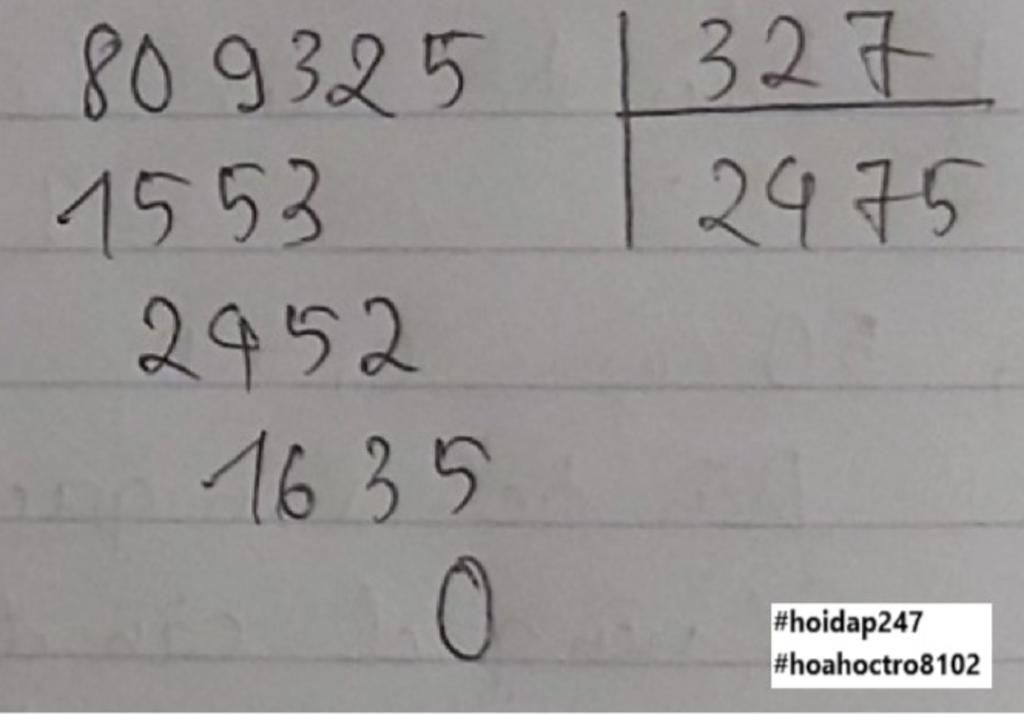 809325 327
1553 2475
2452
1635
0
#hoidap247
#hoahoctro8102